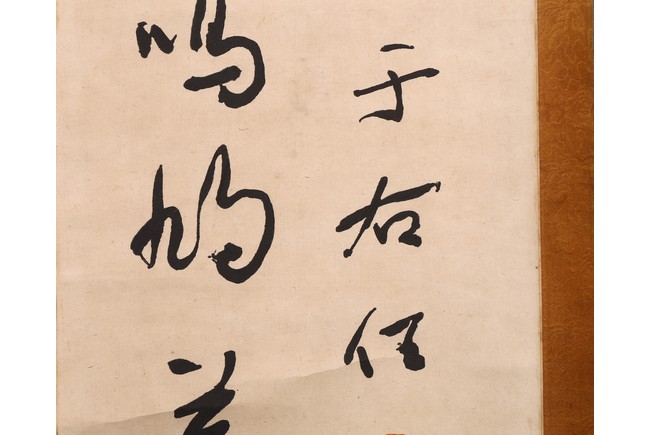 于右任
鳴鳩